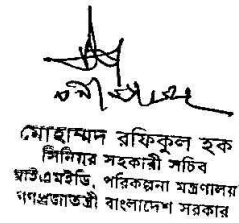 মোহাম্মদ রফিকুল হক
সিনিয়র সহকারী সচিব
আইএমইডি, পরিকল্পনা মন্ত্রণালয়
গণপ্রজাতন্ত্রী বাংলাদেশ সরকার